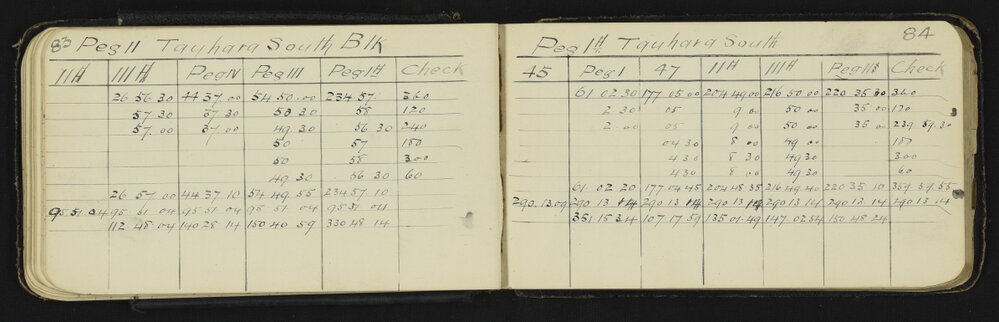 83 Peg II Tauhara South Blk
IIH IIIH Peg IV Peg III Peg IH Check
26 56 30 44 37.00 54 50.00 234 57. 360
57 30 37.30 50 30 58 120
57.00 37.00 49.30 56 30 240
50 57 180
50 58 300
49 30 56 30 60
26 57 00 44 37 10 54 49 55 234 57 10
95 51 04 95 51 04 95 51 04 95 51 04 95 51 04
112 48 04 140 28 14 150 40 59 330 48 14
Peg IH Tauhara South 84
45 Peg I 47 IIH IIIH Peg II Check
61 02.30 177 05 00 204 49 00 216 50 00 220 35 00 360
2 30 05 9 00 50 00 35 00 120
2 00 05 9 00 50 00 35 00 239 59 30
04 30 8 00 49 00 180
4 30 8 30 49 30 300
4 30 8 00 49 30 60
61 02 20 177 04 45 204 48 35 216 49 40 220 35 10 359 59 55
290 13 09 290 13 14 290 13 14 290 13 14 290 13 14 290 13 14 290 13 14
351 15 34 107 17 59 135 01 49 147 02 54 150 48 24